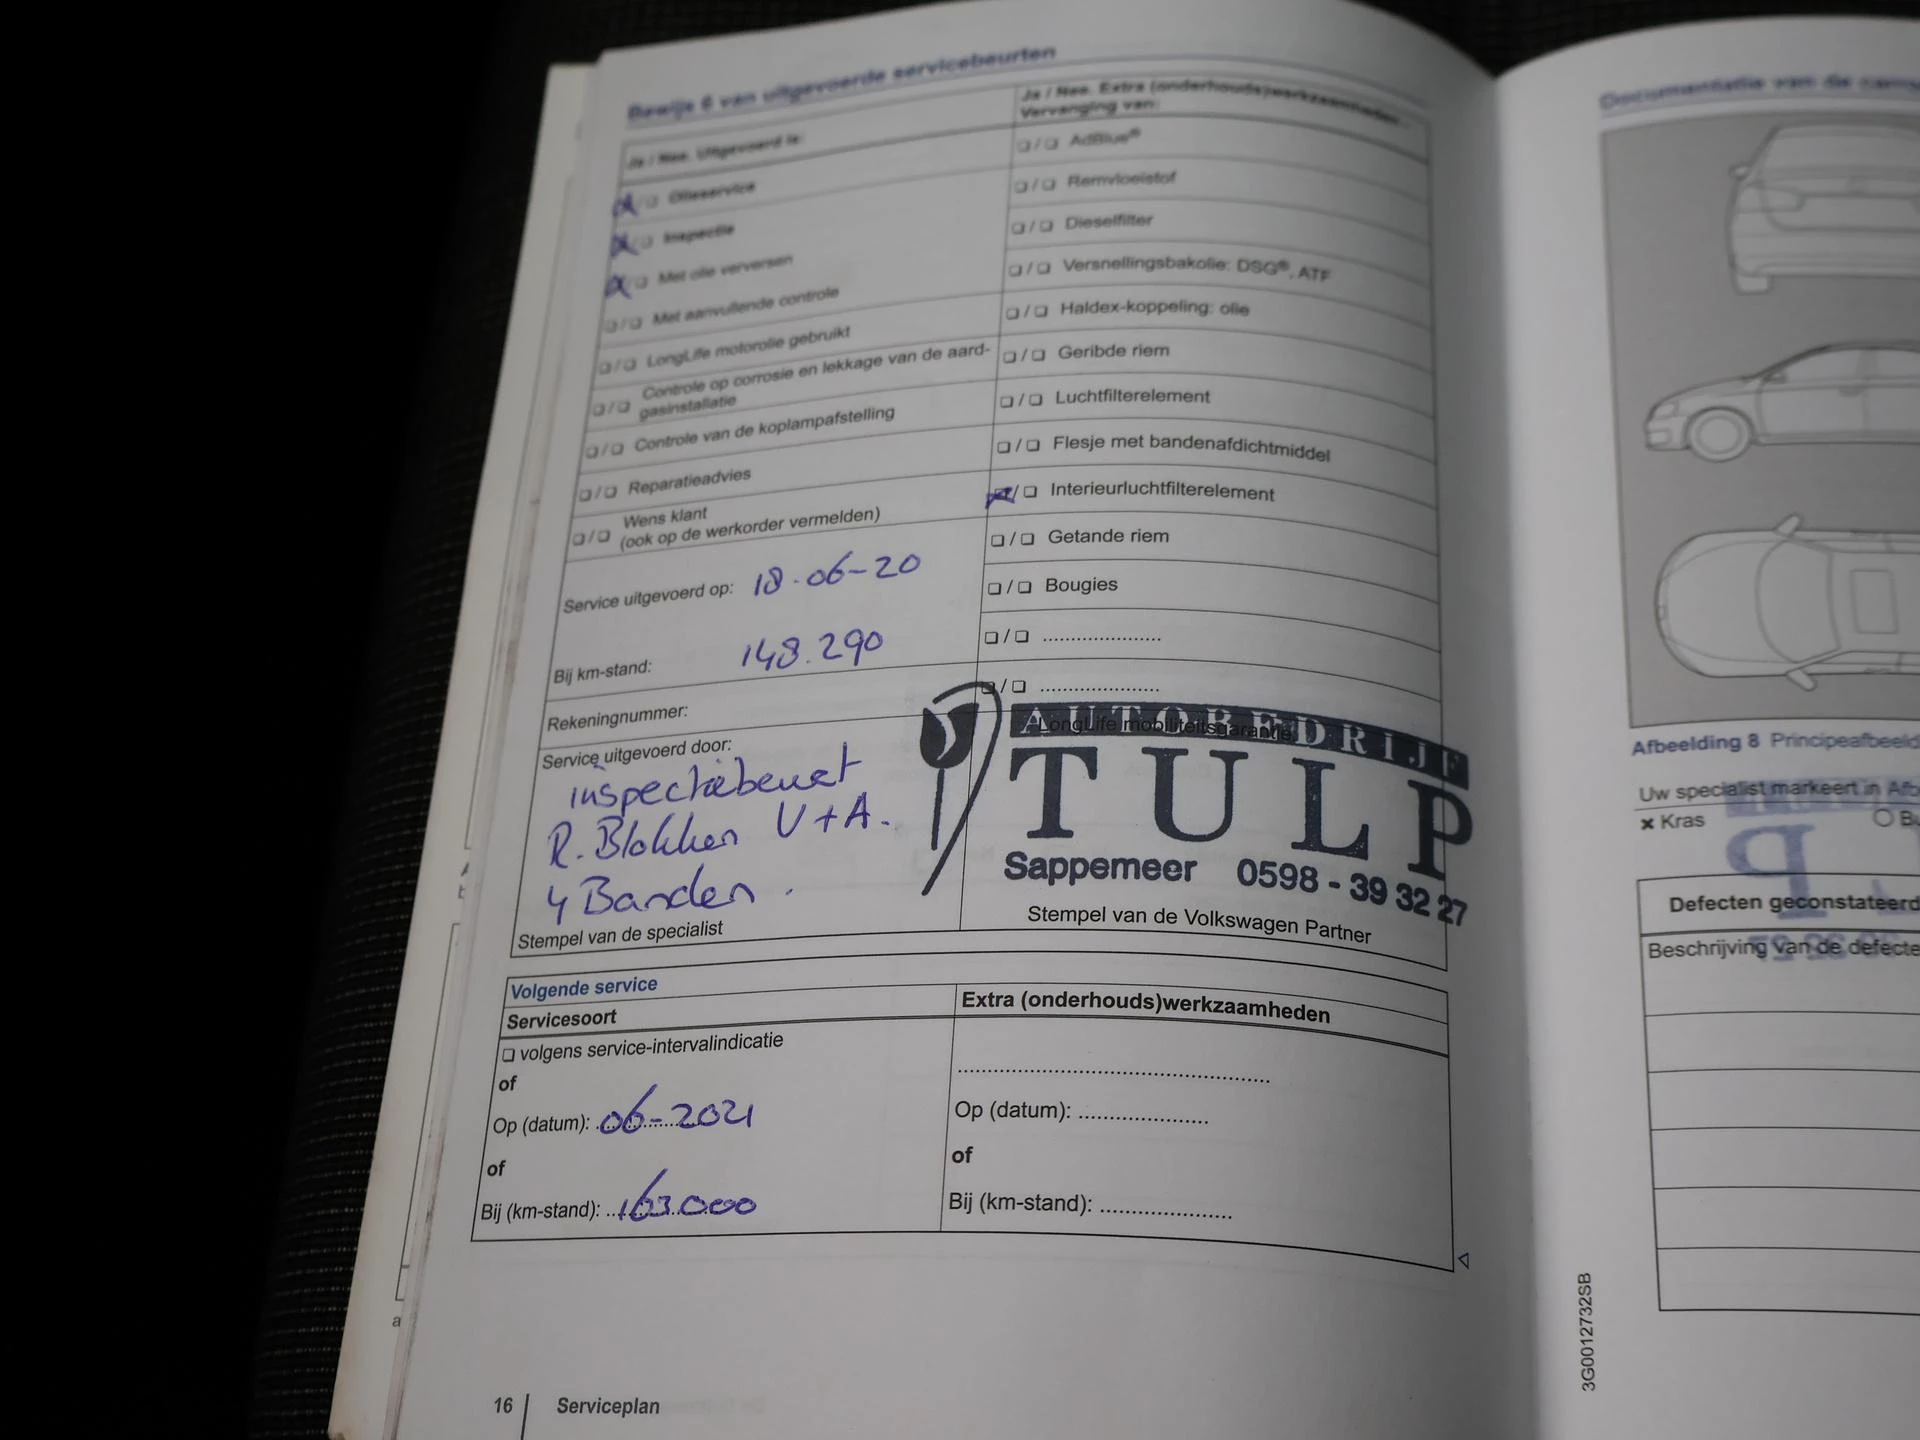 Bewijs 6 van uitgevoerde servicebeurten
Ja / Nee. Uitgevoerd is:
❏ Olieservice
❏ Inspectie
❏ Met olie verversen
❏/❏ Met aanvullende controle
❏/❏ LongLife motorolie gebruikt
❏/❏ Controle op corrosie en lekkage van de aard-
gasinstallatie
❏/❏ Controle van de koplampafstelling
❏/❏ Reparatieadvies
❏/❏ Wens klant
(ook op de werkorder vermelden)
Service uitgevoerd op: 18-06-20
Bij km-stand: 148.290
Rekeningnummer:
Service uitgevoerd door:
inspectiebeurt
R. Blokken V+A.
4 Banden.
Stempel van de specialist
Ja / Nee. Extra (onderhouds)werkzaamheden -
Vervanging van:
❏/❏ AdBlue®
❏/❏ Remvloeistof
❏/❏ Dieselfilter
❏/❏ Versnellingsbakolie: DSG®, ATF
❏/❏ Haldex-koppeling: olie
❏/❏ Geribde riem
❏/❏ Luchtfilterelement
❏/❏ Flesje met bandenafdichtmiddel
/❏ Interieurluchtfilterelement
❏/❏ Getande riem
❏/❏ Bougies
❏/❏ .....................
❏/❏ .....................
LongLife mobiliteitsgarantie
AUTOBEDRIJF
TULP
Sappemeer 0598 - 39 32 27
Stempel van de Volkswagen Partner
Volgende service
Servicesoort
❏ volgens service-intervalindicatie
of
Op (datum): 06-2021
of
Bij (km-stand): 163.000
Extra (onderhouds)werkzaamheden
.....................................................
Op (datum): ......................
of
Bij (km-stand): ......................
16 Serviceplan
Documentatie van de
Afbeelding 8 Principeafbeeld
Uw specialist markeert in Afb
× Kras
Defecten geconstateerd
Beschrijving van de defecte
3G0012732SB